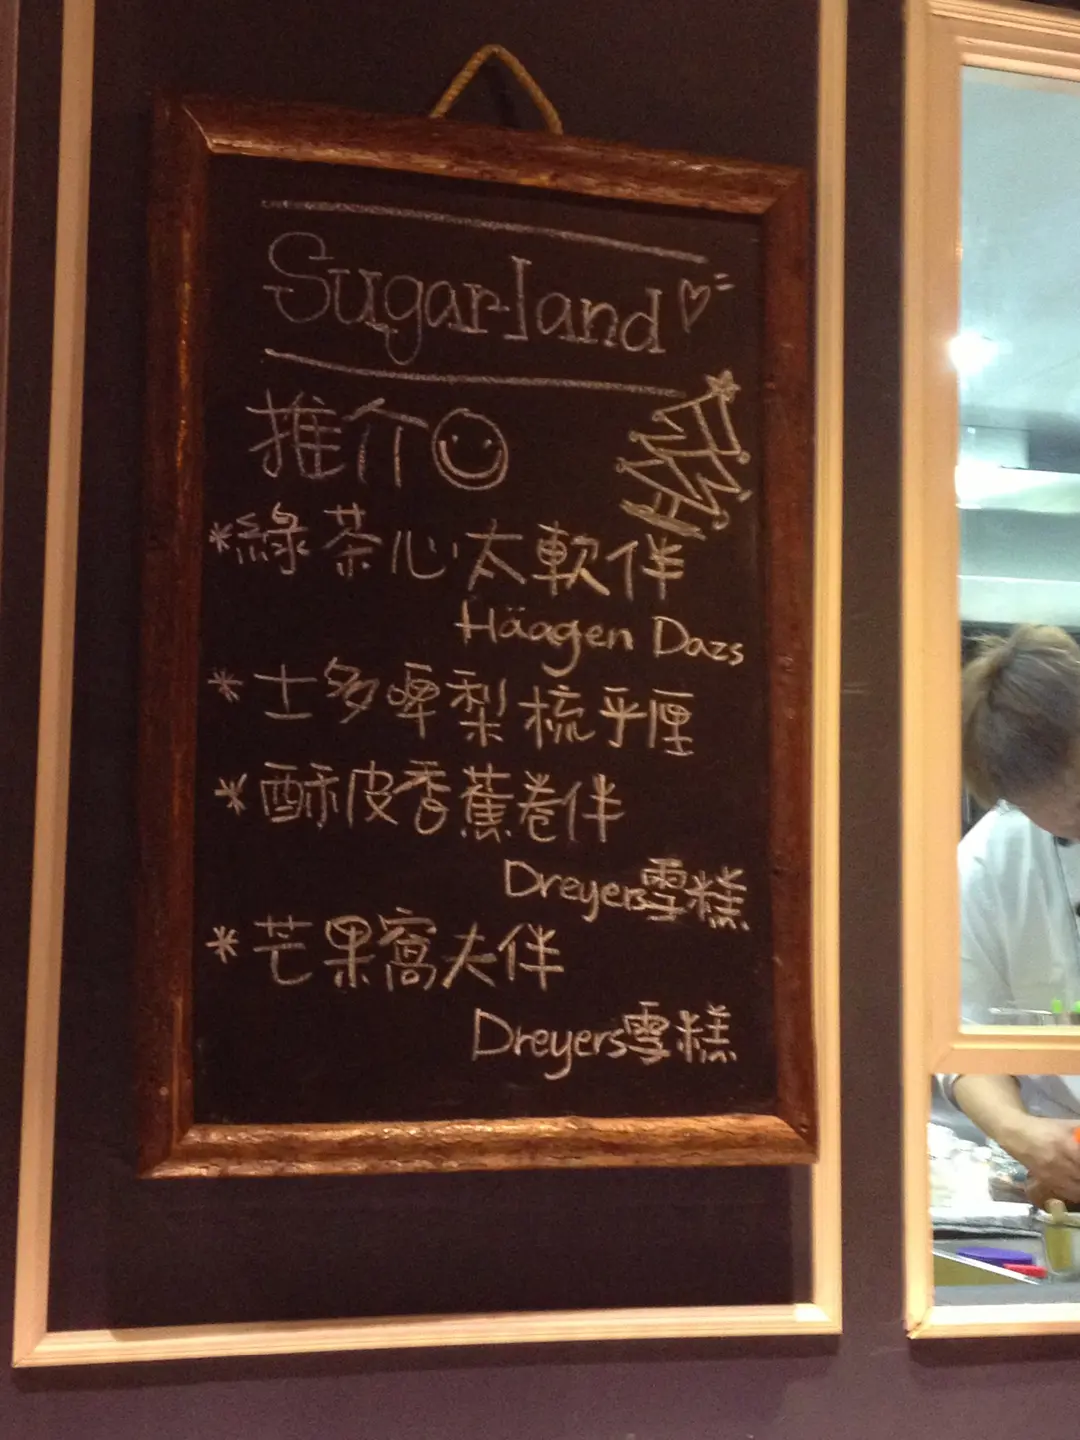 Sugar-land
推介
*綠茶心太軟伴
Häagen Dazs
*士多啤梨梳乎厘
*酥皮香蕉卷伴
Dreyers雪糕
*芒果窩夫伴
Dreyers雪糕